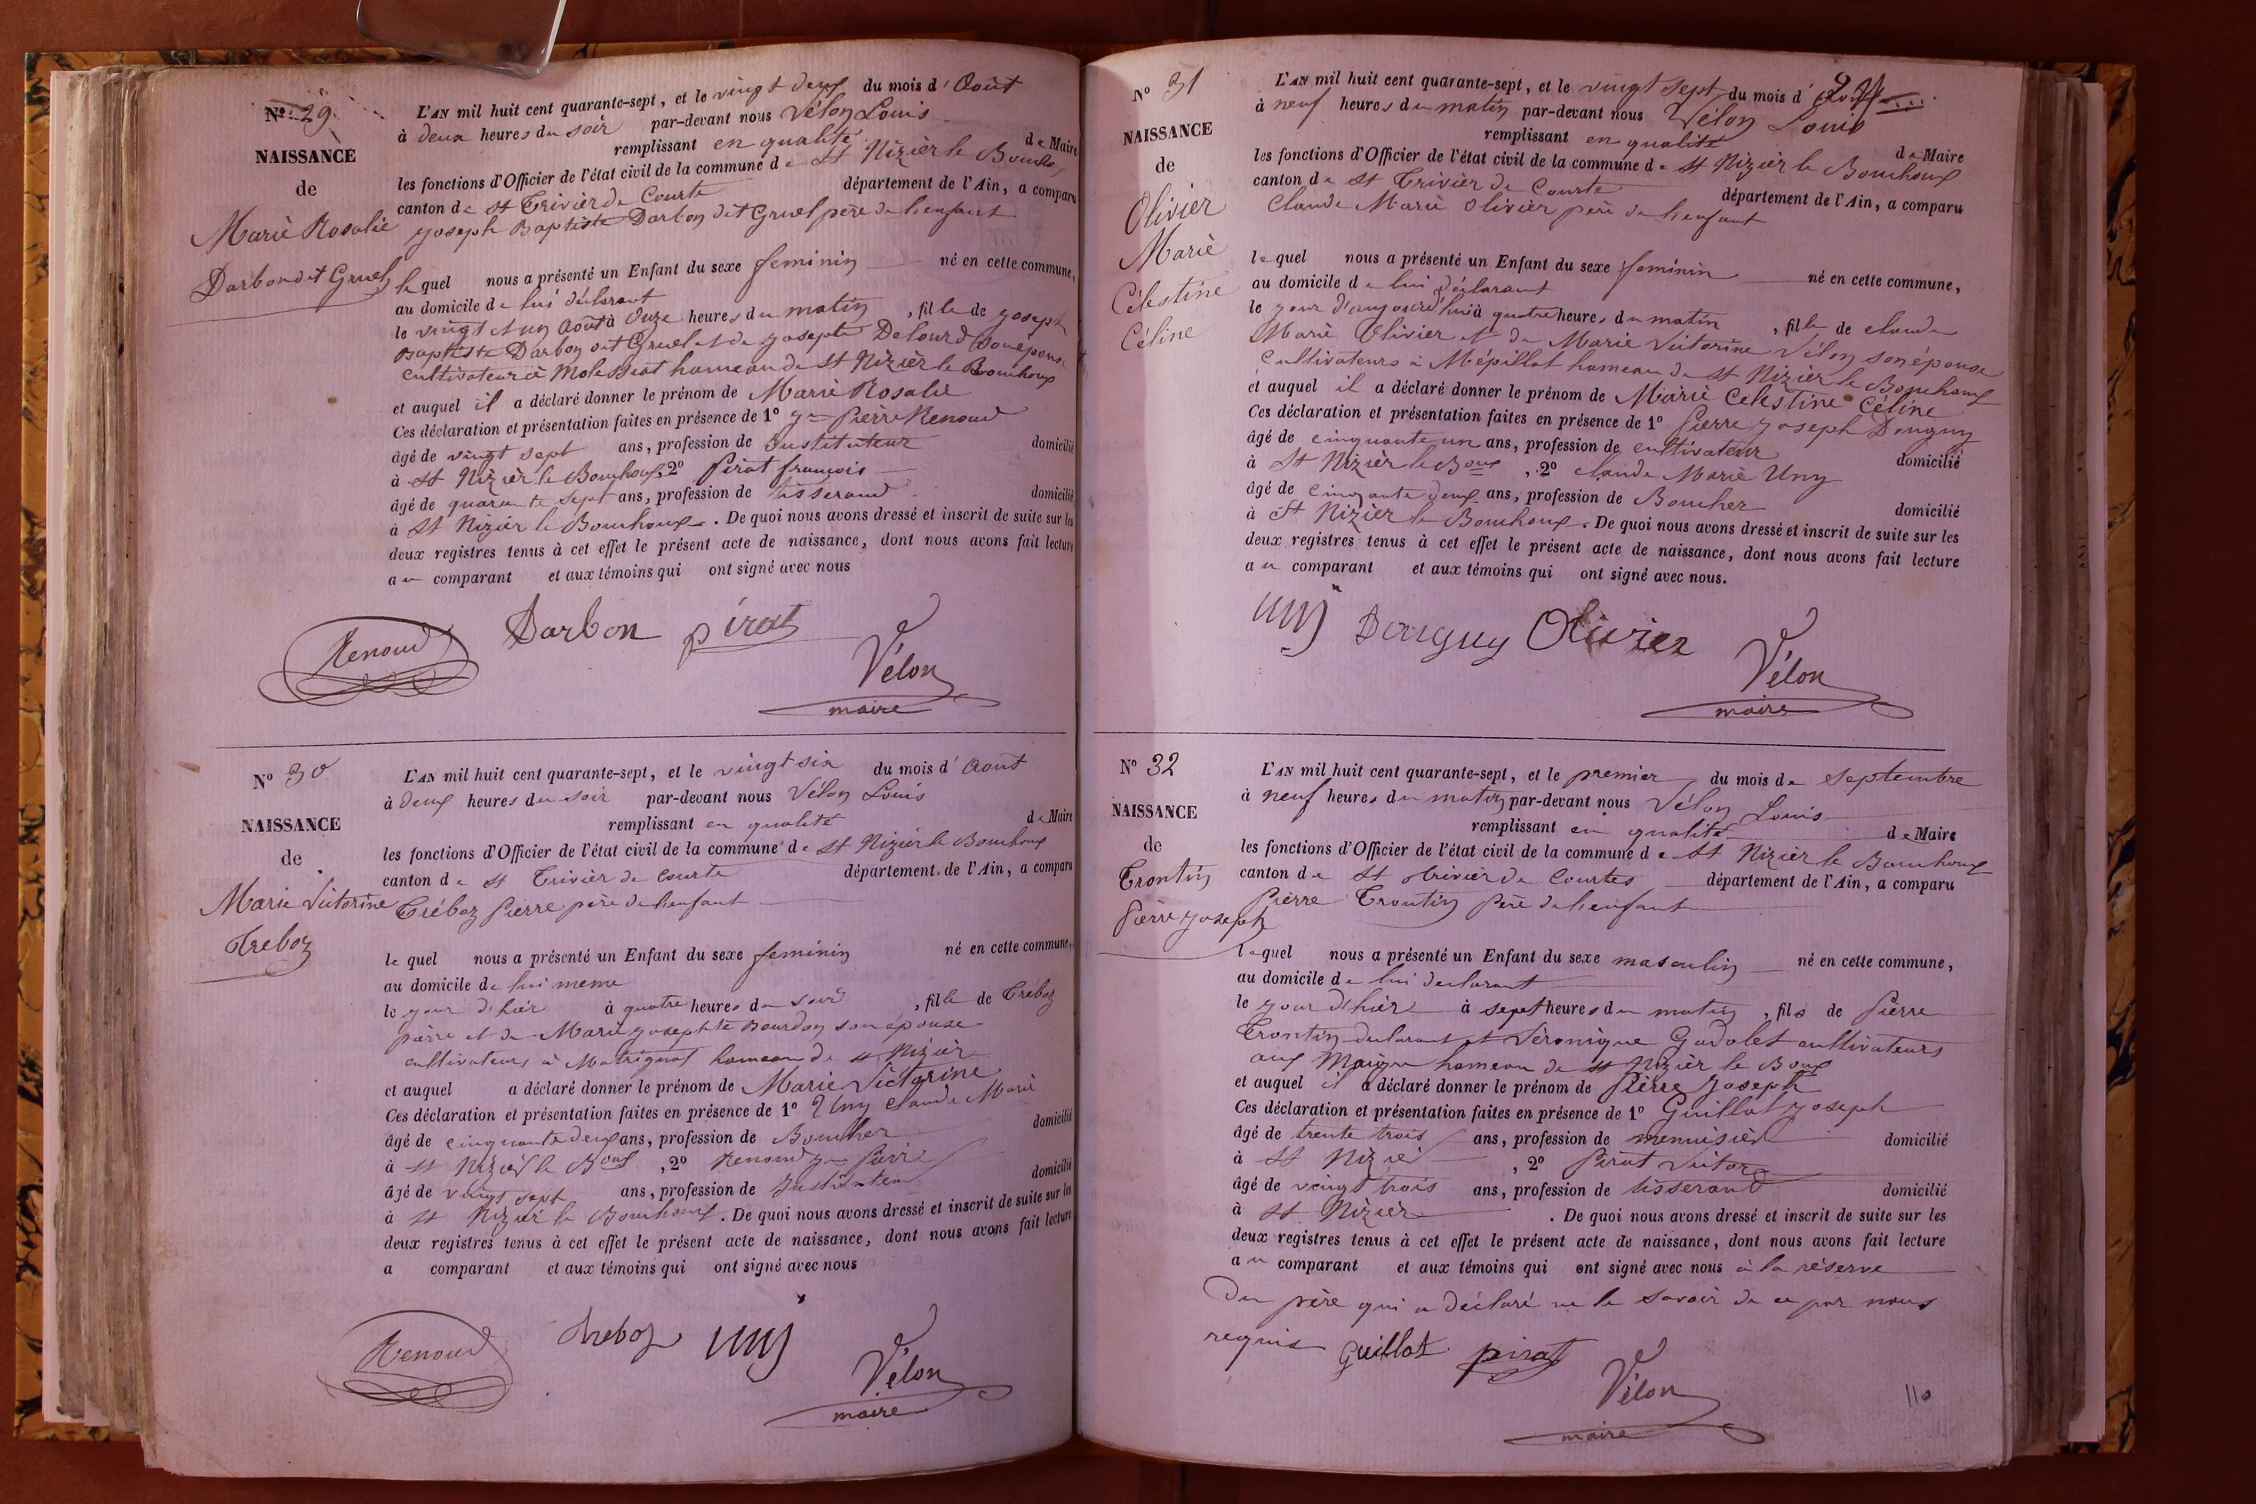 Nº 29
NAISSANCE
de
Marie Rosalie
Darbon dit Gruel
L'AN mil huit cent quarante-sept, et le vingt deux du mois d'Août
à deux heures du soir par-devant nous Vélon Louis
remplissant en qualité de Maire
les fonctions d'Officier de l'état civil de la commune de St Nizièr le Bouchoux
canton de St Trivièr de Courte département de l'Ain, a comparu
Joseph Baptiste Darbon dit Gruel père de l'enfant
lequel nous a présenté un Enfant du sexe feminin né en cette commune,
au domicile de lui déclarant
le vingt et un Août à Onze heures du matin, fille de Joseph
Baptiste Darbon dit Gruel et de Josepte son épouse
cultivateur à hameau de St Nizièr le Bouchoux
et auquel il a déclaré donner le prénom de Marie Rosalie
Ces déclaration et présentation faites en présence de 1º Pierre Renoud
âgé de vingt sept ans, profession de Instituteur domicilié
à St Nizièr le Bouchoux, 2º Pirat françois
âgé de quarante sept ans, profession de tisserand domicilié
à St Nizièr le Bouchoux. De quoi nous avons dressé et inscrit de suite sur les
deux registres tenus à cet effet le présent acte de naissance, dont nous avons fait lecture
au comparant et aux témoins qui ont signé avec nous
Renoud Darbon pirat
Vélon
maire
Nº 30
NAISSANCE
de
Marie Victorine
Treboz
L'AN mil huit cent quarante-sept, et le vingt six du mois d'Août
à deux heures du soir par-devant nous Vélon Louis
remplissant en qualité de Maire
les fonctions d'Officier de l'état civil de la commune de St Nizièr le Bouchoux
canton de St Trivièr de Courte département de l'Ain, a comparu
Tréboz Pierre père de l'enfant
le quel nous a présenté un Enfant du sexe feminin né en cette commune,
au domicile de lui meme
le jour d'hièr à quatre heures du soir, fille de Tréboz
pierre et de Marie Josephte Bourdon son épouse
cultivateurs à hameau de St Nizièr
et auquel a déclaré donner le prénom de Marie Victorine
Ces déclaration et présentation faites en présence de 1º Uny Claude Marie
âgé de cinquante deux ans, profession de Boucher domicilié
à St Nizièr le Boux, 2º Renoud Pierre
âgé de vingt sept ans, profession de Instituteur domicilié
à St Nizièr le Bouchoux. De quoi nous avons dressé et inscrit de suite sur les
deux registres tenus à cet effet le présent acte de naissance, dont nous avons fait lecture
a comparant et aux témoins qui ont signé avec nous
Renoud treboz uny
Vélon
maire
Nº 31
NAISSANCE
de
Olivier
Marie
Célestine
Céline
L'AN mil huit cent quarante-sept, et le vingt sept du mois d'
à neuf heures du matin par-devant nous Vélon Louis
remplissant en qualité de Maire
les fonctions d'Officier de l'état civil de la commune de St Nizièr le Bouchoux
canton de St Trivièr de Courte département de l'Ain, a comparu
Claude Marie Olivièr père de l'enfant
lequel nous a présenté un Enfant du sexe feminin né en cette commune,
au domicile de lui déclarant
le jour d'aujourd'hui à quatre heures du matin, fille de claude
Marie Olivier et de Marie Victorine Vélon son épouse
cultivateurs à Mépillat hameau de St Nizièr le Bouchoux
et auquel il a déclaré donner le prénom de Marie Celestine Céline
Ces déclaration et présentation faites en présence de 1º Pierre Joseph Donguy
âgé de cinquante un ans, profession de cultivateur domicilié
à St Nizièr le Boux, 2º claude Marie Uny
âgé de cinquante deux ans, profession de Boucher domicilié
à St Nizièr le Bouchoux. De quoi nous avons dressé et inscrit de suite sur les
deux registres tenus à cet effet le présent acte de naissance, dont nous avons fait lecture
au comparant et aux témoins qui ont signé avec nous.
uny Donguy Olivier
Vélon
maire
Nº 32
NAISSANCE
de
Trontin
Pierre Joseph
L'AN mil huit cent quarante-sept, et le premier du mois de Septembre
à neuf heures du matin par-devant nous Vélon Louis
remplissant en qualité de Maire
les fonctions d'Officier de l'état civil de la commune de St Nizièr le Bouchoux
canton de St trivièr de Courtes département de l'Ain, a comparu
Pierre Trontin père de l'enfant
lequel nous a présenté un Enfant du sexe masculin né en cette commune,
au domicile de lui declarant
le jour d'hièr à sept heures du matin, fils de Pierre
Trontin declarant et Véronique Gadolet cultivateurs
aux hameau de St Nizièr le Boux
et auquel il a déclaré donner le prénom de Pierre Joseph
Ces déclaration et présentation faites en présence de 1º Guillat Joseph
âgé de trente trois ans, profession de menuisièr domicilié
à St Nizier, 2º Pirat Victor
âgé de vingt trois ans, profession de tisserand domicilié
à St Nizièr. De quoi nous avons dressé et inscrit de suite sur les
deux registres tenus à cet effet le présent acte de naissance, dont nous avons fait lecture
au comparant et aux témoins qui ont signé avec nous à la réserve
Du père qui a déclaré ne le savoir de ce par nous
requis Guillat pirat
Vélon
maire
110